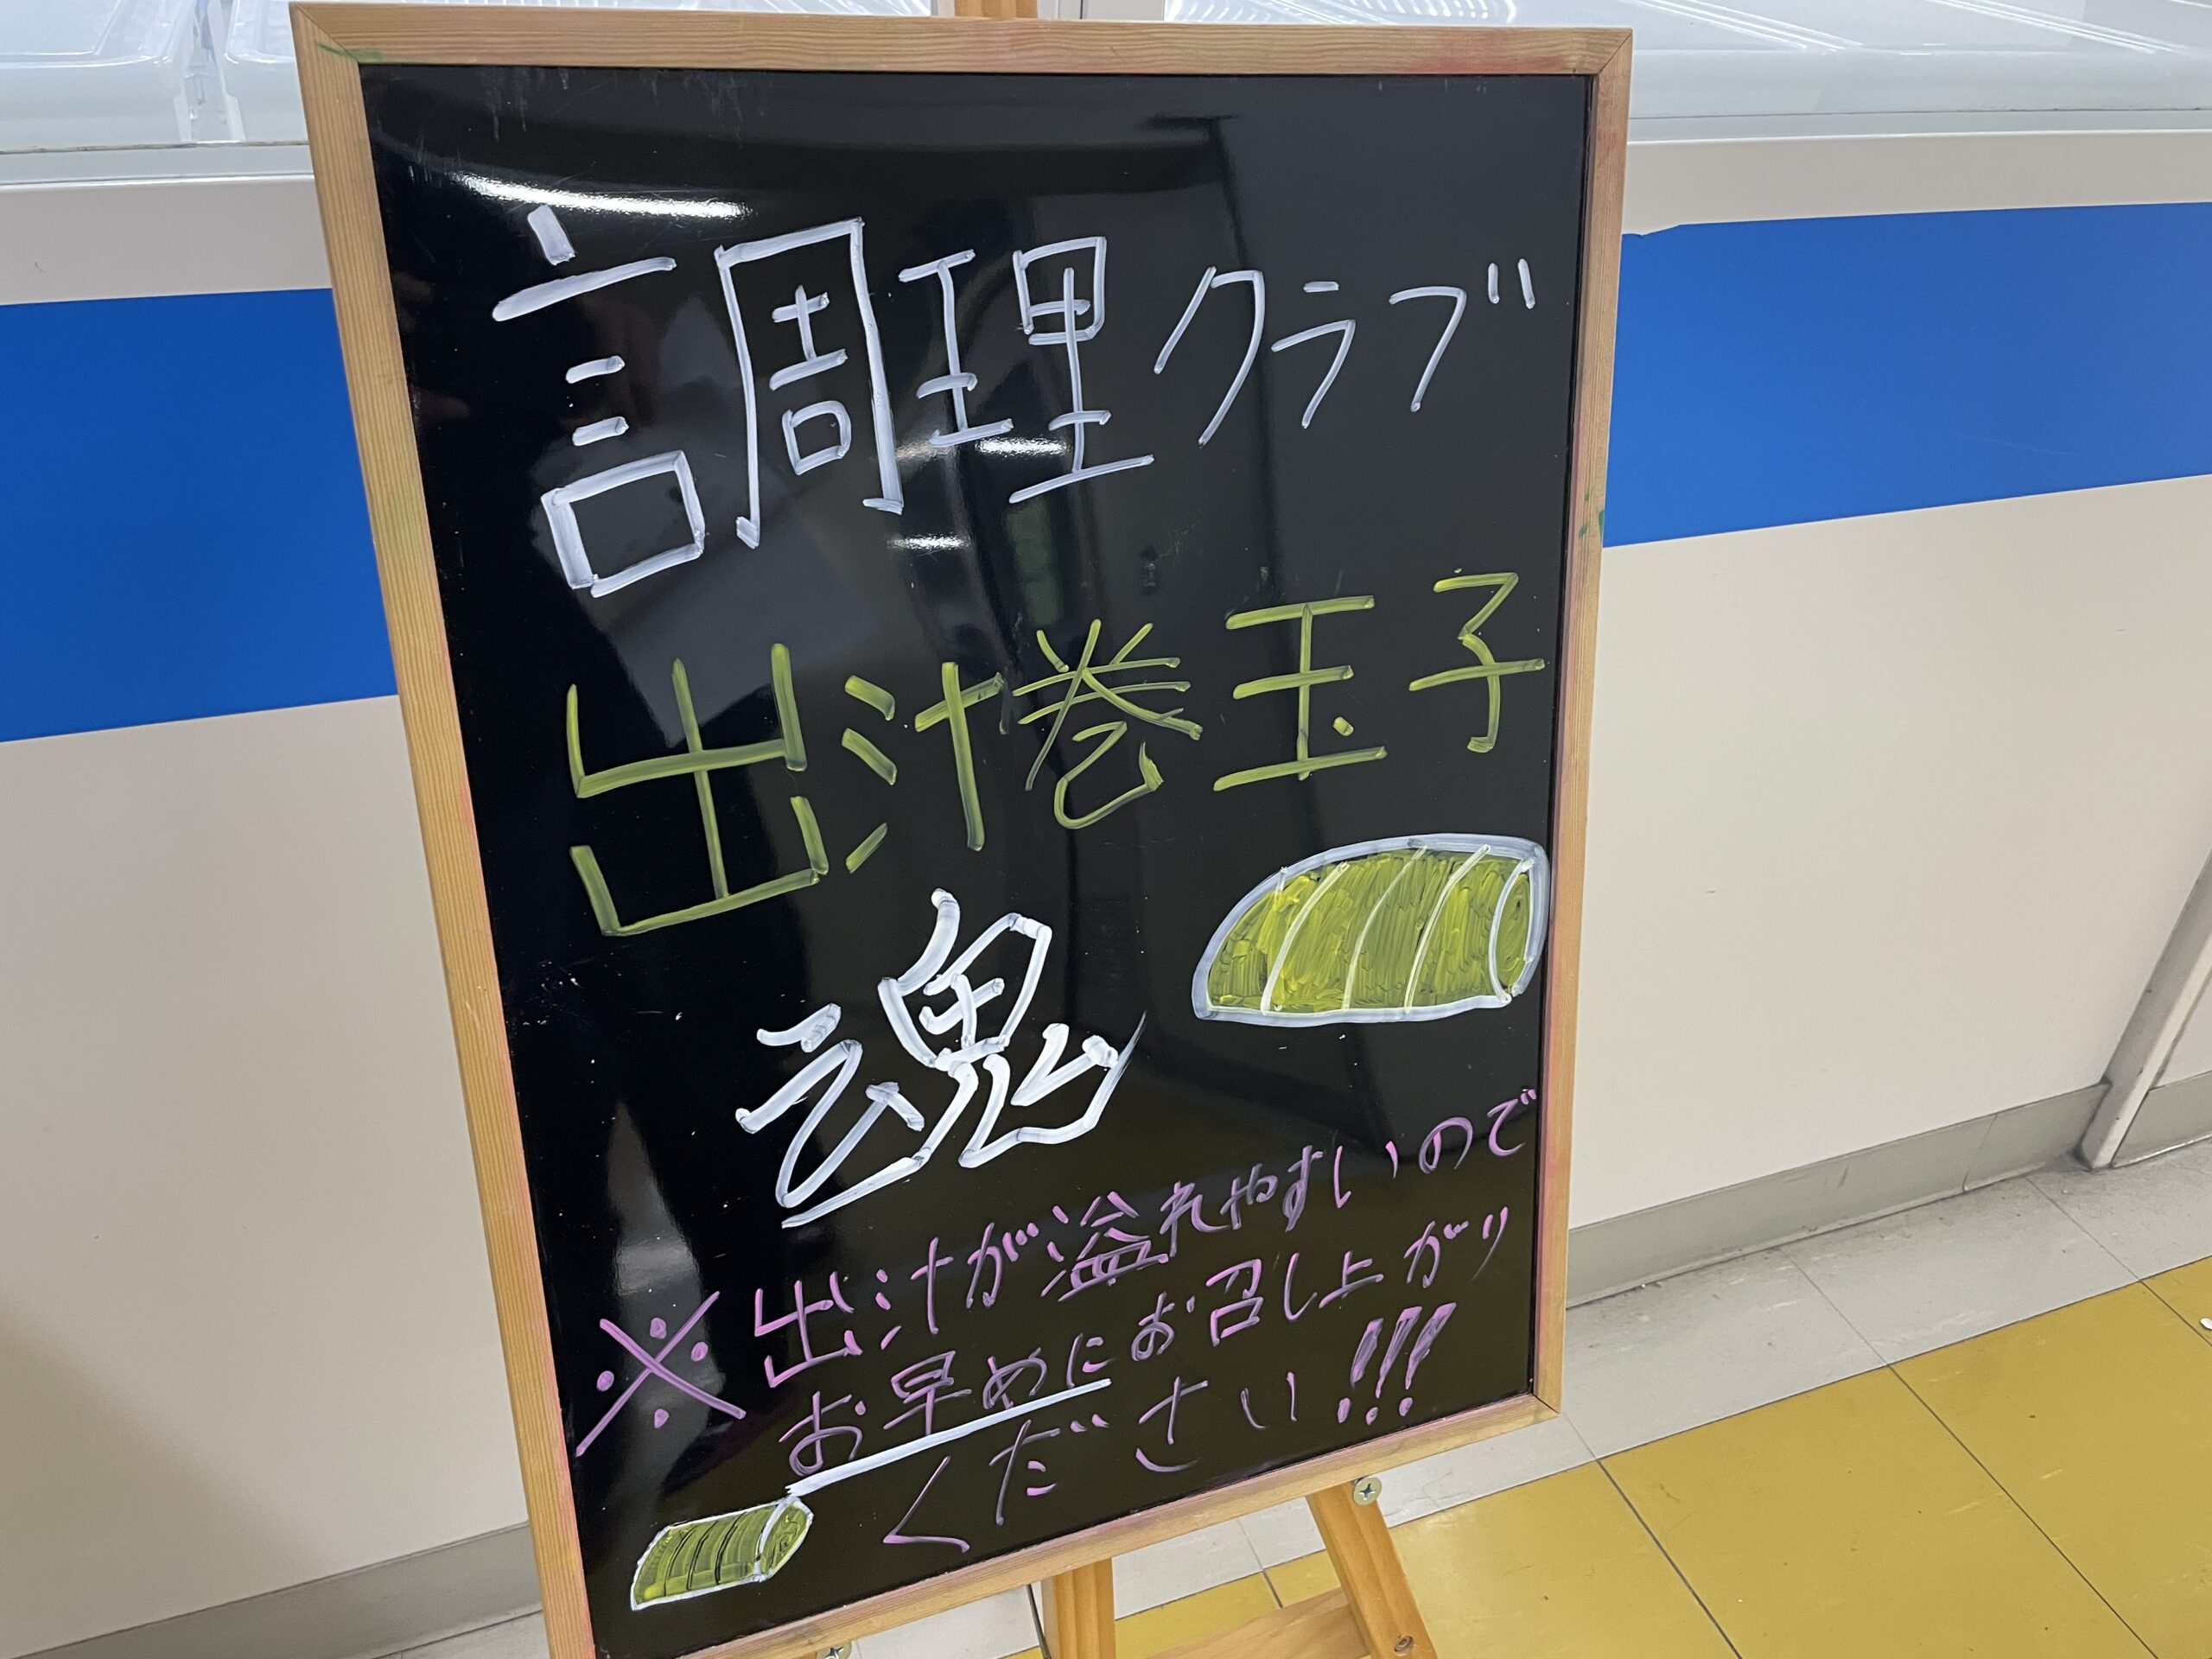 調理クラブ
出汁巻玉子
魂
※出汁が溢れやすいので
お早めにお召し上がり
ください!!!